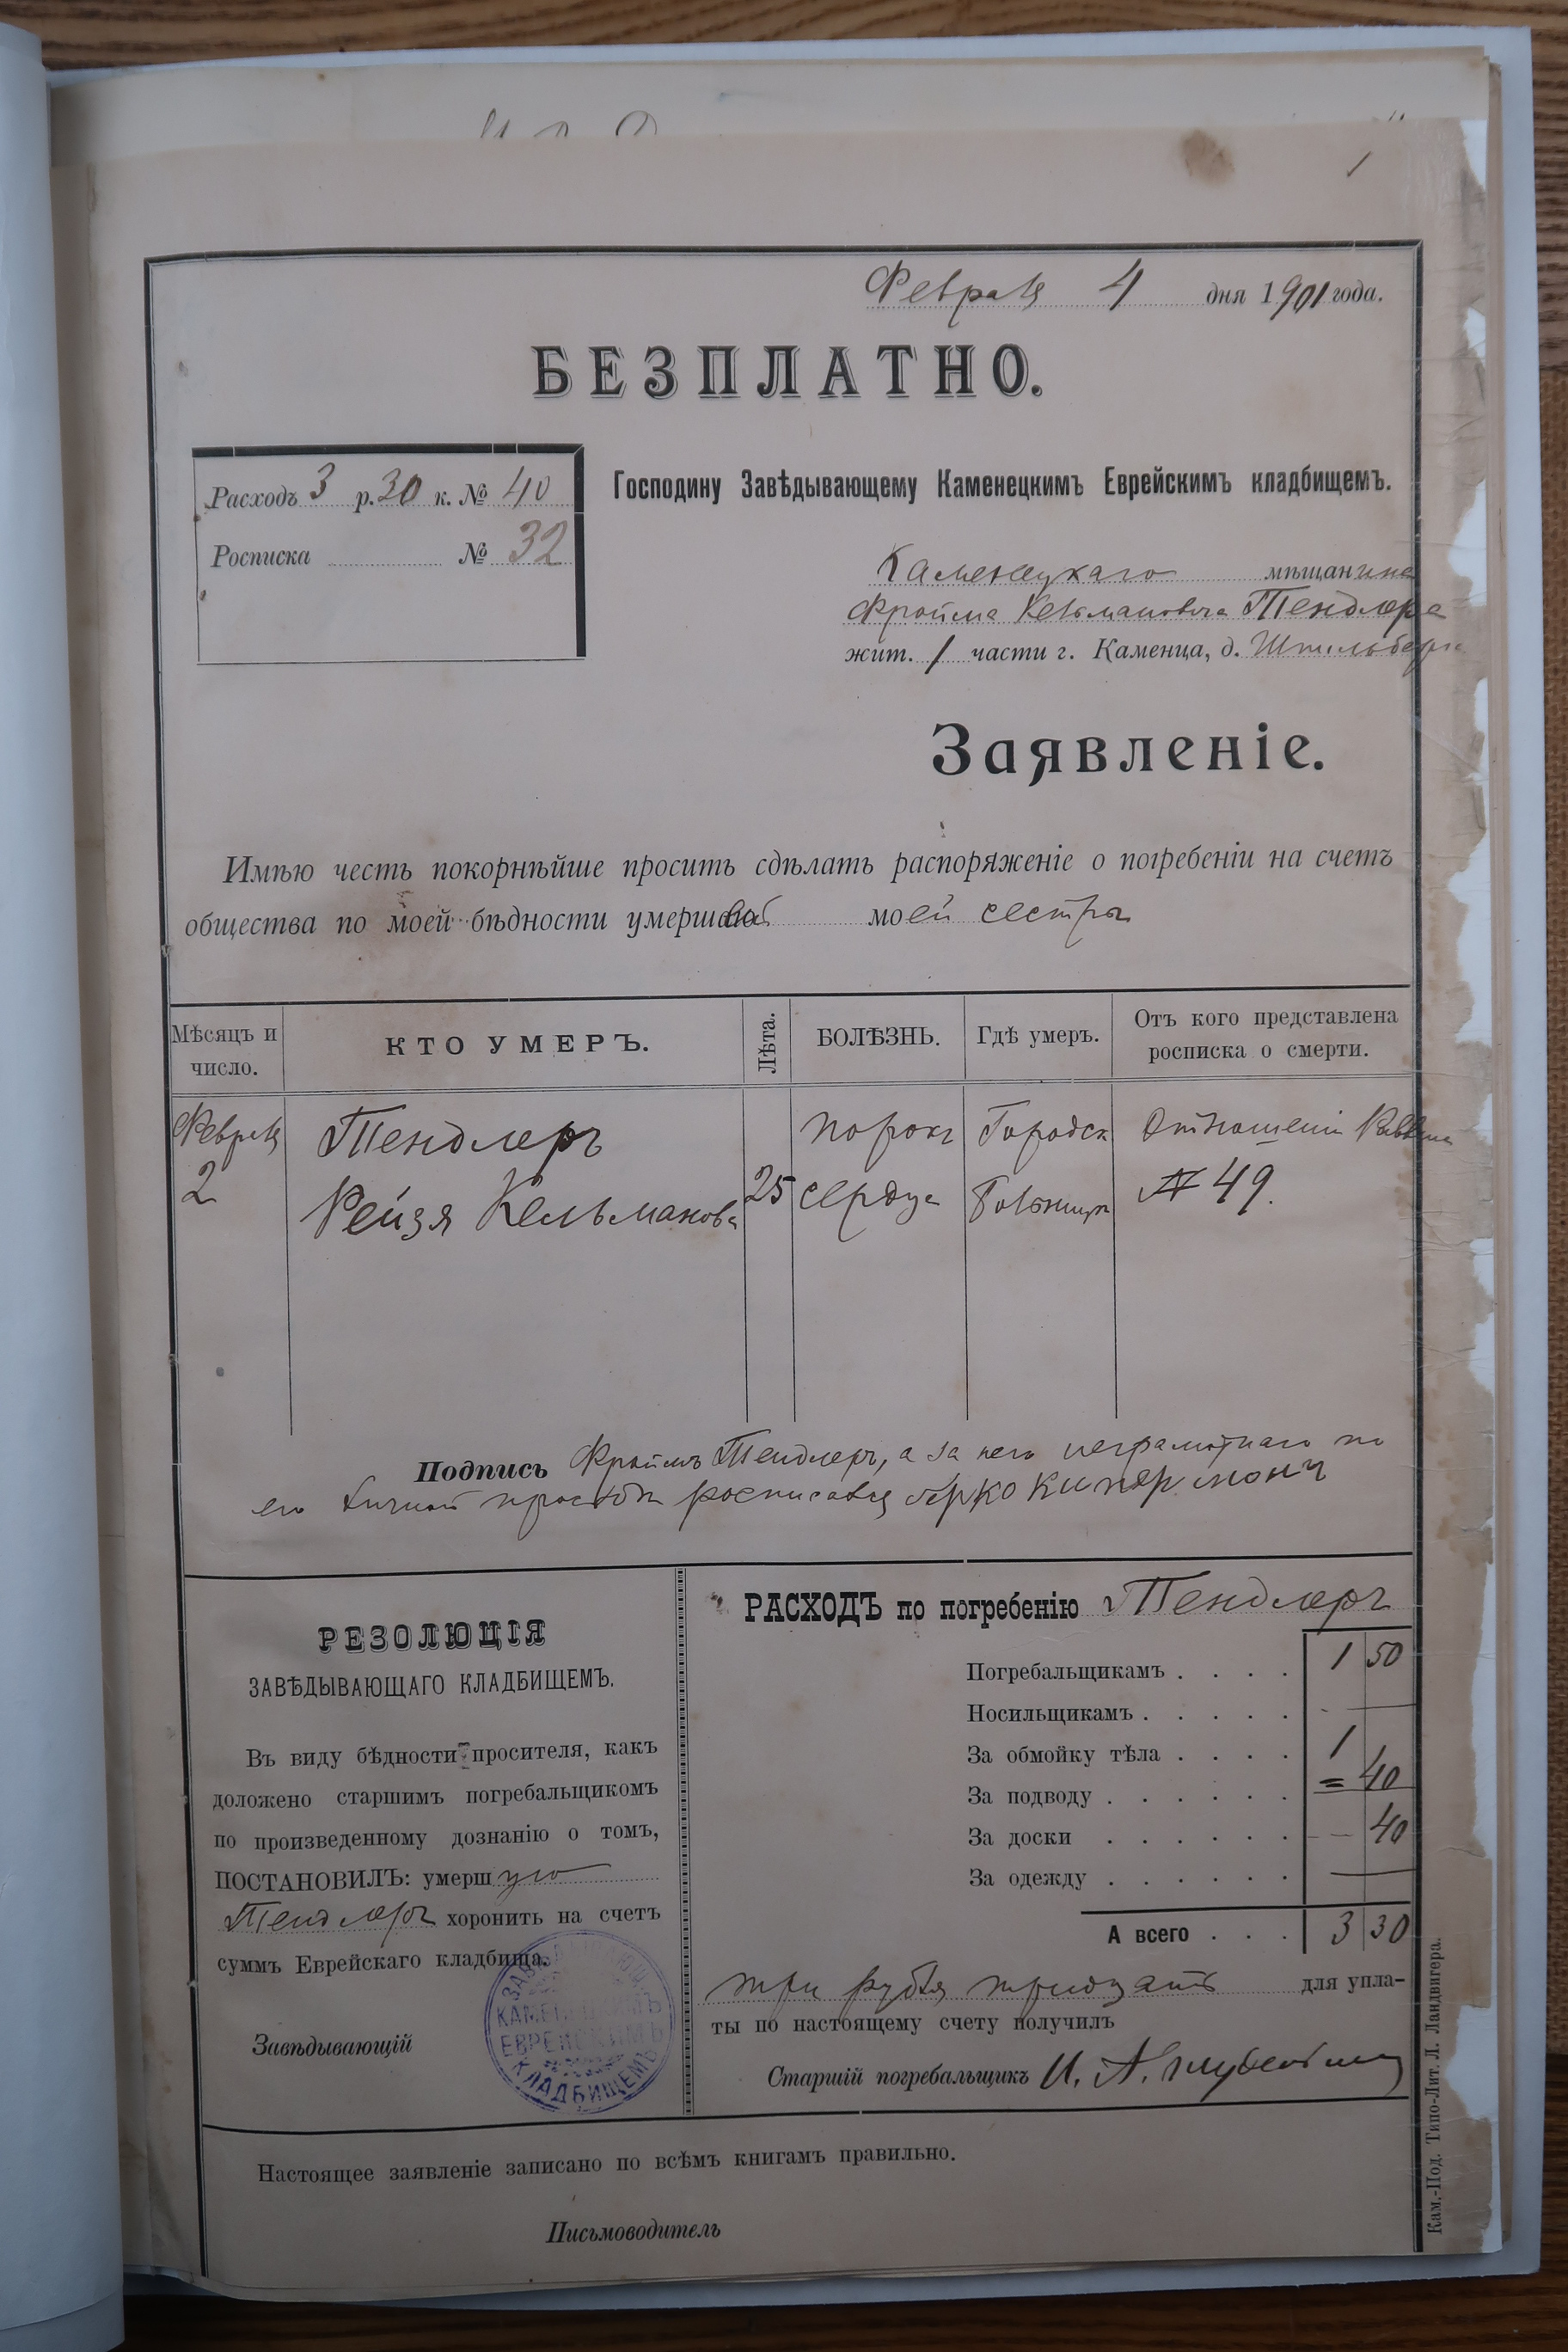 1
Февраля 4 дня 1901 года.
БЕЗПЛАТНО.
Расходъ 3 р. 30 к. № 40
Росписка № 32
Господину Завѣдывающему Каменецкимъ Еврейскимъ кладбищемъ.
Каменецкаго мѣщанина
Фройма Кельмановича Тендлера
жит. 1 части г. Каменца, д. Штильберга
Заявленіе.
Имѣю честь покорнѣйше просить сдѣлать распоряженіе о погребеніи на счетъ
общества по моей бѣдности умершей моей сестры
Мѣсяцъ и число.
КТО УМЕРЪ.
Лѣта.
БОЛѢЗНЬ.
Гдѣ умеръ.
Отъ кого представлена росписка о смерти.
Февраля Тендлеръ порокъ Городск Отношеніи Раввина
2 Рейзя Кельманова 25 сердца Больницѣ № 49.
Подпись Фроймъ Тендлеръ, а за него неграмотнаго по
его личной просьбѣ росписался Берко Киперманъ
РЕЗОЛЮЦІЯ
ЗАВѢДЫВАЮЩАГО КЛАДБИЩЕМЪ.
Въ виду бѣдности просителя, какъ
доложено старшимъ погребальщикомъ
по произведенному дознанію о томъ,
ПОСТАНОВИЛЪ: умершую
Тендлеръ хоронить на счетъ
суммъ Еврейскаго кладбища.
Завѣдывающій
КАМЕНЕЦКИМЪ
ЕВРЕЙСКИМЪ
КЛАДБИЩЕМЪ
РАСХОДЪ по погребенію Тендлеръ
Погребальщикамъ . . . . 1 50
Носильщикамъ . . . . . —
За обмойку тѣла . . . . 1
За подводу . . . . . . = 40
За доски . . . . . . — 40
За одежду . . . . . . —
А всего . . . 3 30
три рубля тридцать для упла-
ты по настоящему счету получилъ
Старшій погребальщикъ И. А.
Настоящее заявленіе записано по всѣмъ книгамъ правильно.
Письмоводитель
Кам.-Под. Типо-Лит. Л. Ландвигера.